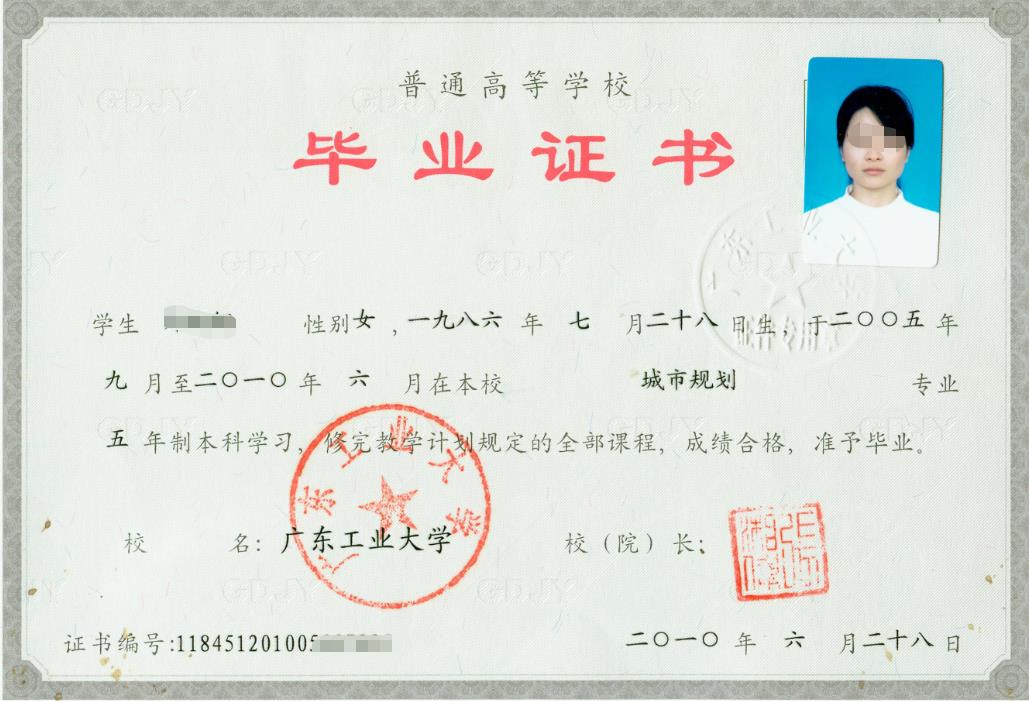 普通高等学校
毕业证书
学生 性别女,一九八六年七月二十八日生,于二〇〇五年
九月至二〇一〇年六月在本校 城市规划 专业
五年制本科学习,修完教学计划规定的全部课程,成绩合格,准予毕业。
校 名:广东工业大学 校(院)长:
广东工业大学
证书编号:118451201005 二〇一〇年六月二十八日